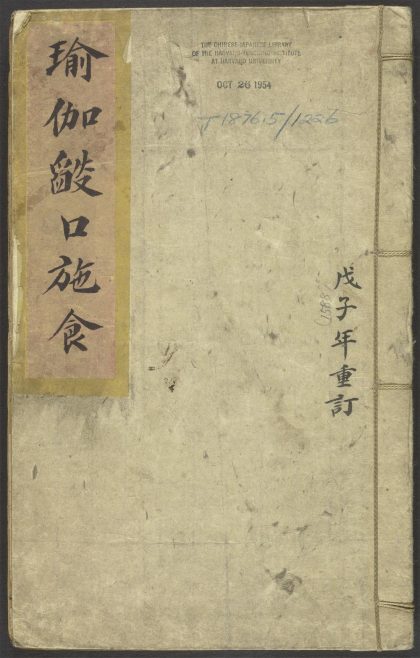 瑜伽燄口施食
THE CHINESE-JAPANESE LIBRARY
OF THE HARVARD-YENCHING INSTITUTE
AT HARVARD UNIVERSITY
OCT 26 1954
戊子年重訂